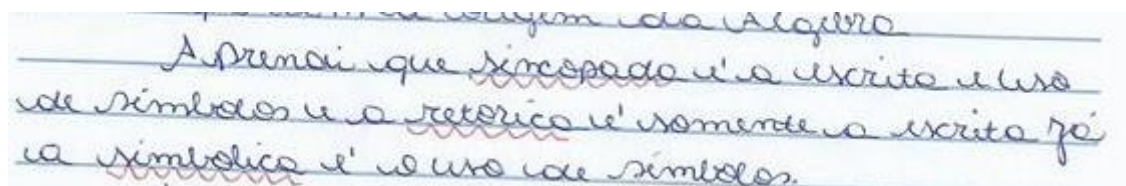 origem da Algebra
Aprendi que sincopada é a escrita e uso
de símbolos e a retorica é somente a escrita já
a simbolica é o uso de símbolos.